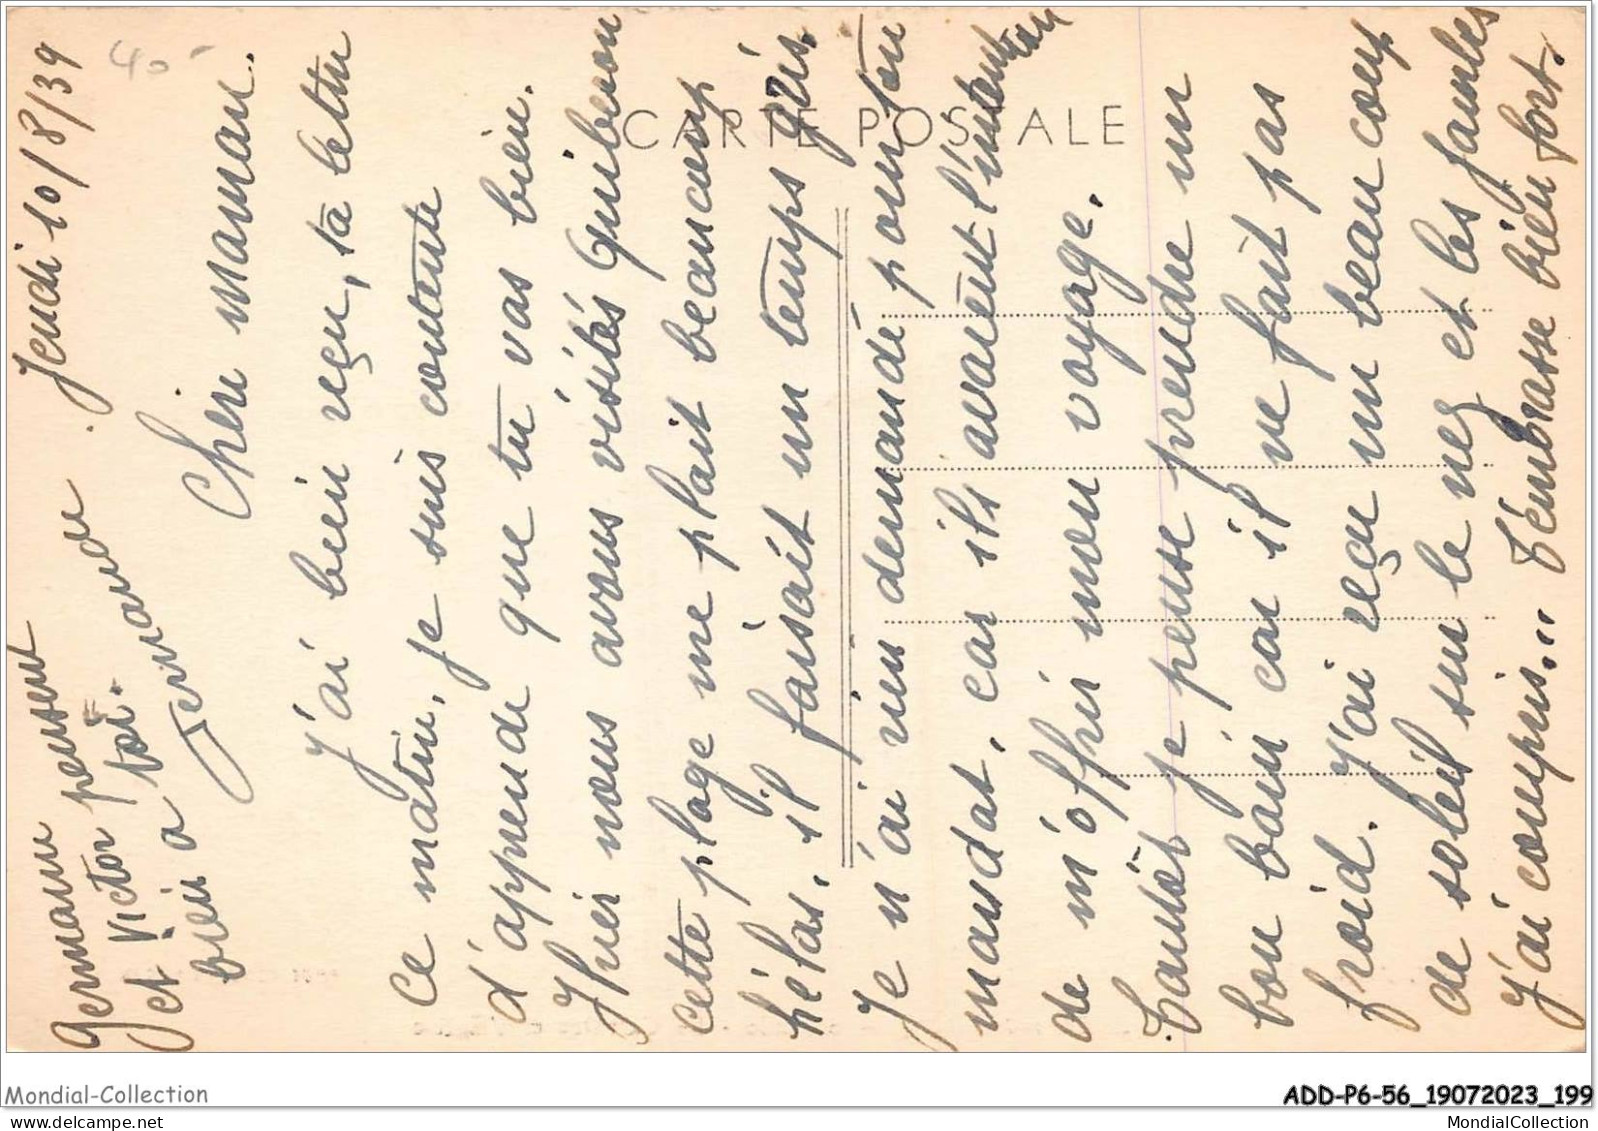 Jeudi 10/8/39
40-
Chère maman.
J'ai bien reçu, ta lettre
ce matin, je suis contente
d'apprende que tu vas bien.
Hier nous avons visités Quiberon
cette plage me plait beaucoup
hélas, il faisait un temps gris.
Je n'ai rien demandé pour ton
mandat, car ils avaient l'intention
de m'offrir mon voyage.
Tantôt je pense prendre un
bon bain car il ne fait pas
froid. J'ai reçu un beau coup
de soleil sur le nez et les jambes
j'ai compris... T'embrasse bien fort.
Germaine
et Victor pensent
bien a toi.
CARTE POSTALE
Mondial-Collection
ADD-P6-56_19072023_199
www.mondial-collection.com
MondialCollection